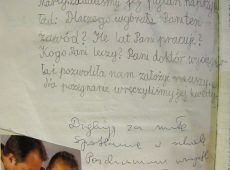 tań: Dlaczego wybrała Pani ten
zawód? Ile lat Pani pracuje?
Kogo Pani leczy? Pani doktór
i pozwoliła nam założyć
Na pożegnanie wręczyliśmy jej kwiaty.
Dziękuję za miłe
spotkanie w szkole
Pozdrawiam